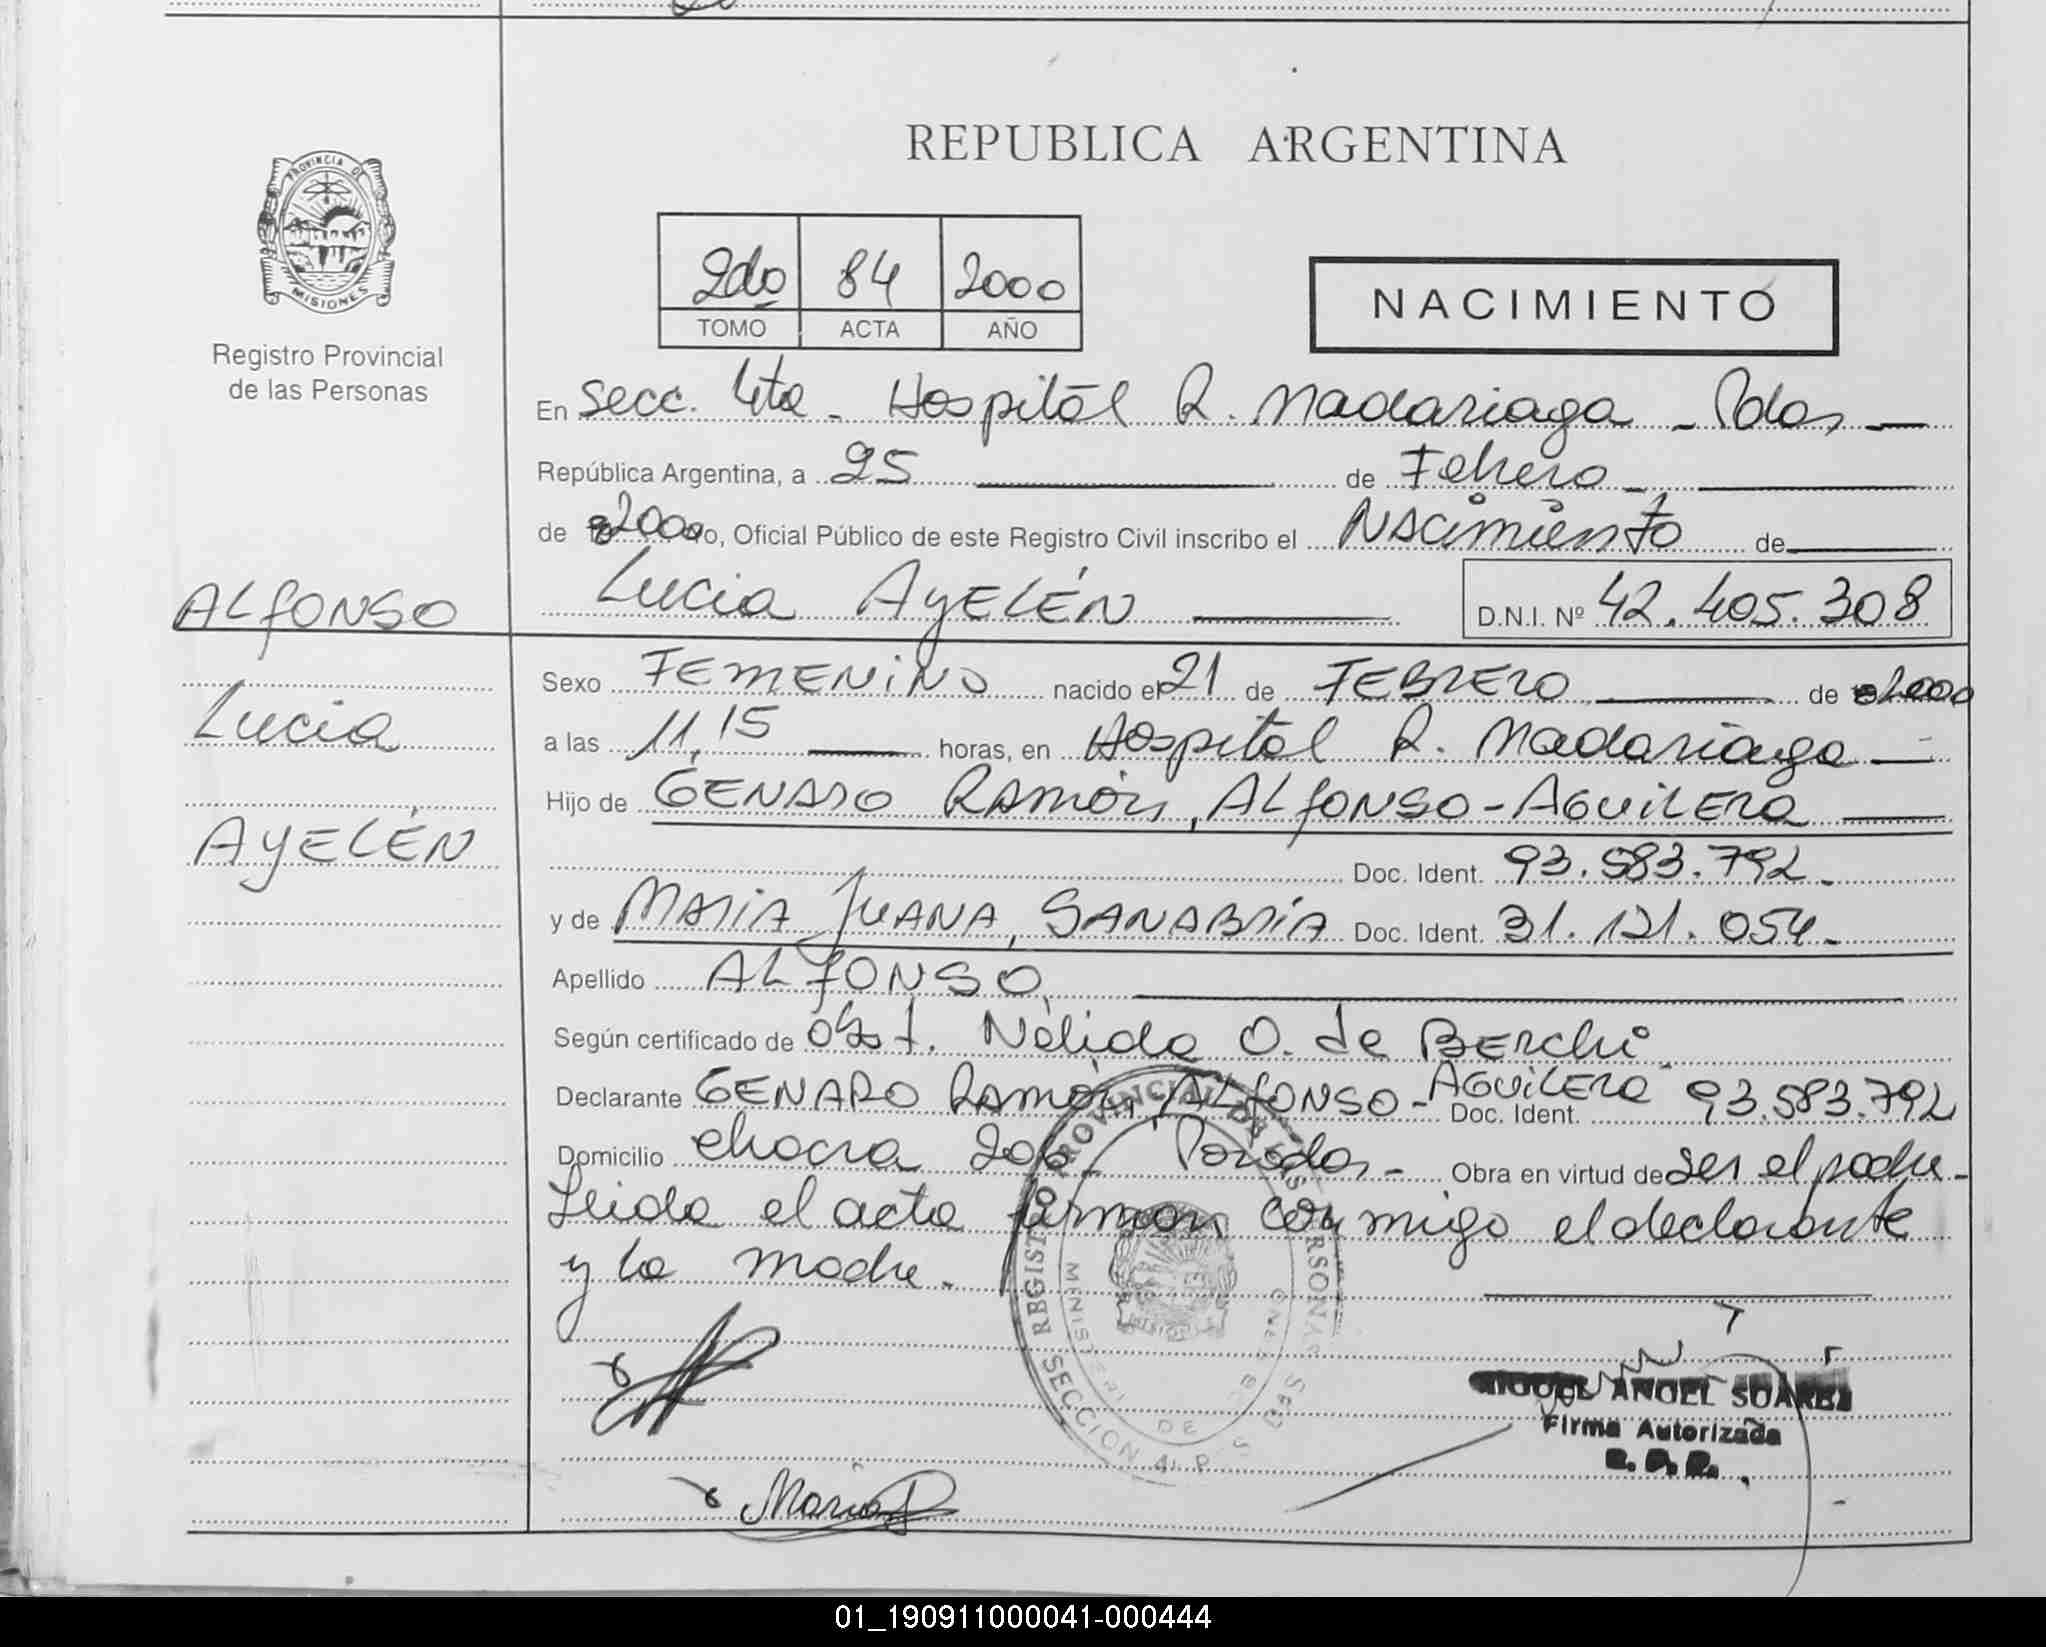 REPUBLICA ARGENTINA
PROVINCIA DE
MISIONES
Registro Provincial
de las Personas
2do 84 2000
TOMO ACTA AÑO
NACIMIENTO
En Secc. 4ta - Hospital R. Madariaga - Pdas
República Argentina, a 25 de Febrero
de 2000 yo, Oficial Público de este Registro Civil inscribo el Nacimiento de
ALFONSO
Lucia
AYELÉN
Lucia AYELÉN D.N.I. Nº 42.405.308
Sexo FEMENINO nacido el 21 de FEBRERO de 2000
a las 11,15 horas, en Hospital R. Madariaga
Hijo de GENARO RAMÓN, ALFONSO-AGUILERA
Doc. Ident. 93.583.792-
y de MARIA JUANA, SANABRIA Doc. Ident. 31.121.054-
Apellido ALFONSO
Según certificado de Obst. Nélida O. de BERchi
Declarante GENARO RAMÓN, ALFONSO-AGUILERA Doc. Ident. 93.583.792
Domicilio chacra 206 - Posadas - Obra en virtud de ser el padre-
Leida el acta firman conmigo el declarante
y la madre.
REGISTRO PROVINCIAL DE LAS PERSONAS
SECCION 4
MIGUEL ANGEL SUAREZ
Firma Autorizada
R. P. P.
Maria
01_190911000041-000444